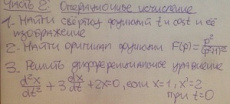 Часть 2: Операционное исчисление
1. Найти свёртку функций t и cost и её
изображение
2. Найти оригинал функции F(p)= p²/(p²+1)²
3. Решить дифференциальное уравнение
d²x/dt² + 3 dx/dt + 2x=0, если x=1, x'=2
при t=0